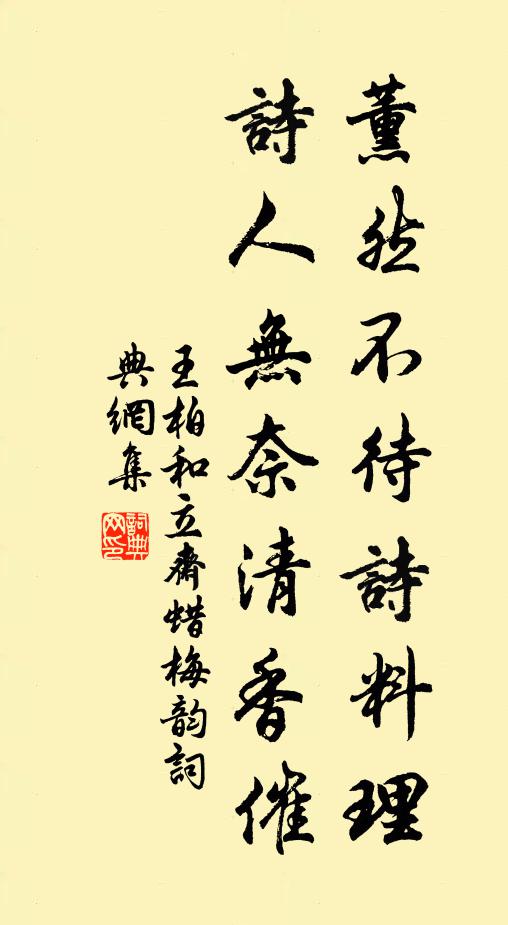 薰然不待詩料理
詩人無奈清香催
王柏和立齋蜡梅韵詞
典網集
詞典
网印